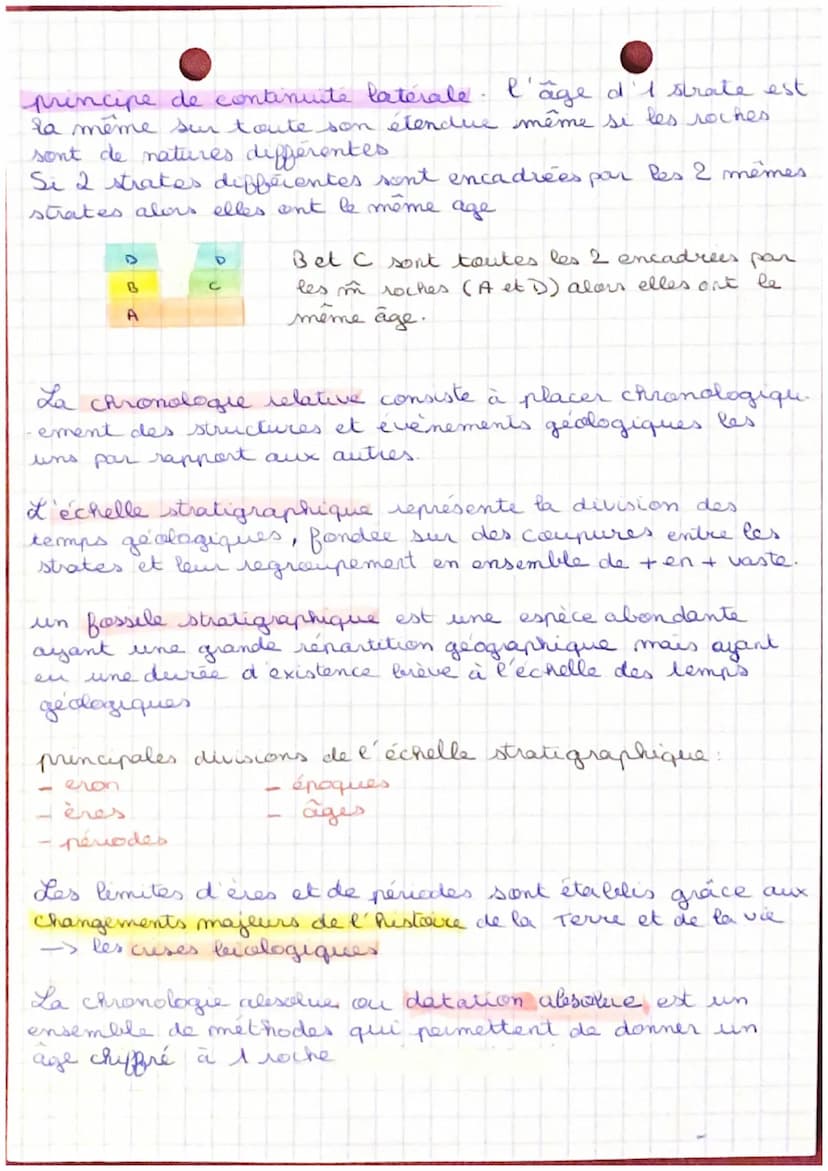 principe de continuité latérale. l'âge d'1 strate est
la même sur toute son étendue même si les roches
sont de natures différentes
Si 2 strates différentes sont encadrées par les 2 mêmes
strates alors elles ont le même age
D D
B C
A
B et C sont toutes les 2 encadrées par
les m̂ roches (A et D) alors elles ont le
même âge.
La chronologie relative consiste à placer chronologiqu-
-ement des structures et évènements géologiques les
uns par rapport aux autres.
L'échelle stratigraphique représente la division des
temps géologiques, fondée sur des coupures entre les
strates et leur regroupement en ensemble de + en + vaste.
un fossile stratigraphique est une espèce abondante
ayant une grande répartition géographique mais ayant
eu une durée d'existence brève à l'échelle des temps
géologiques
principales divisions de l'échelle stratigraphique :
- eron
- ères
- périodes
- époques
- âges
Les limites d'ères et de périodes sont établis grâce aux
changements majeurs de l'histoire de la Terre et de la vie
-> les crises biologiques
La chronologie absolue ou datation absolue est un
ensemble de méthodes qui permettent de donner un
âge chiffré à 1 roche